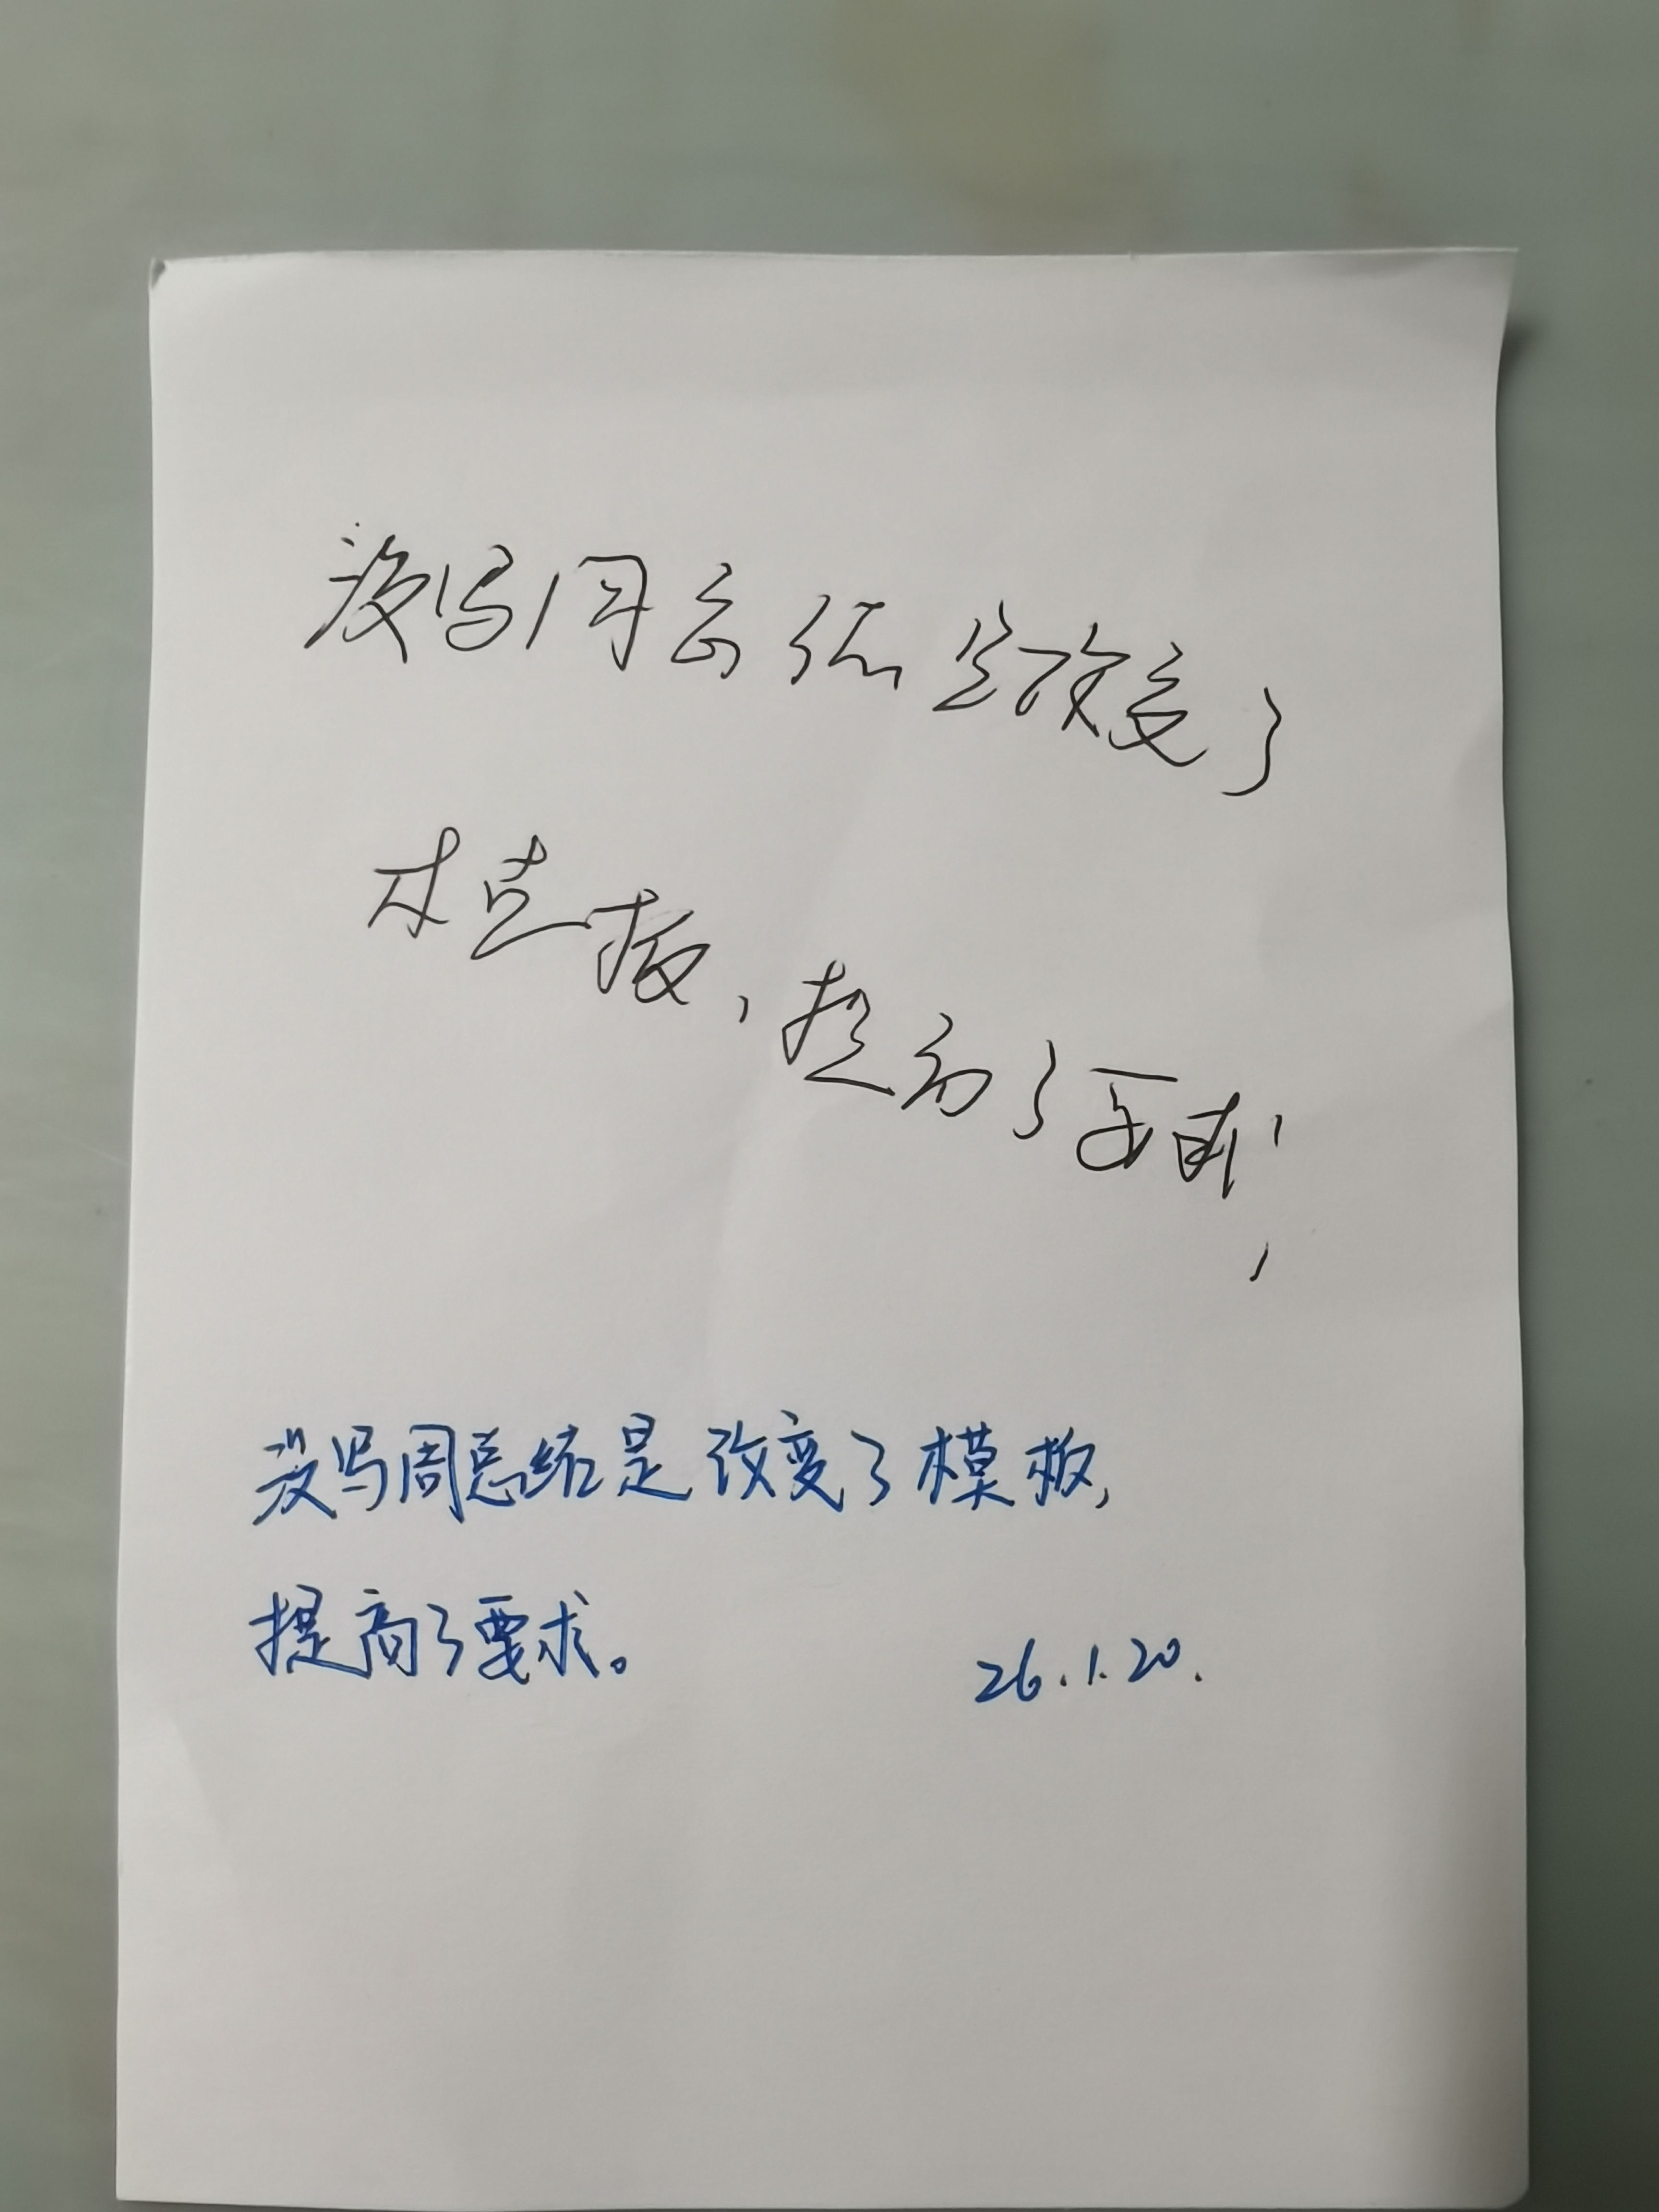 没写周总结是改变了
模板，提高了要求，
没写周总结是改变了模板，
提高了要求。 26.1.20.